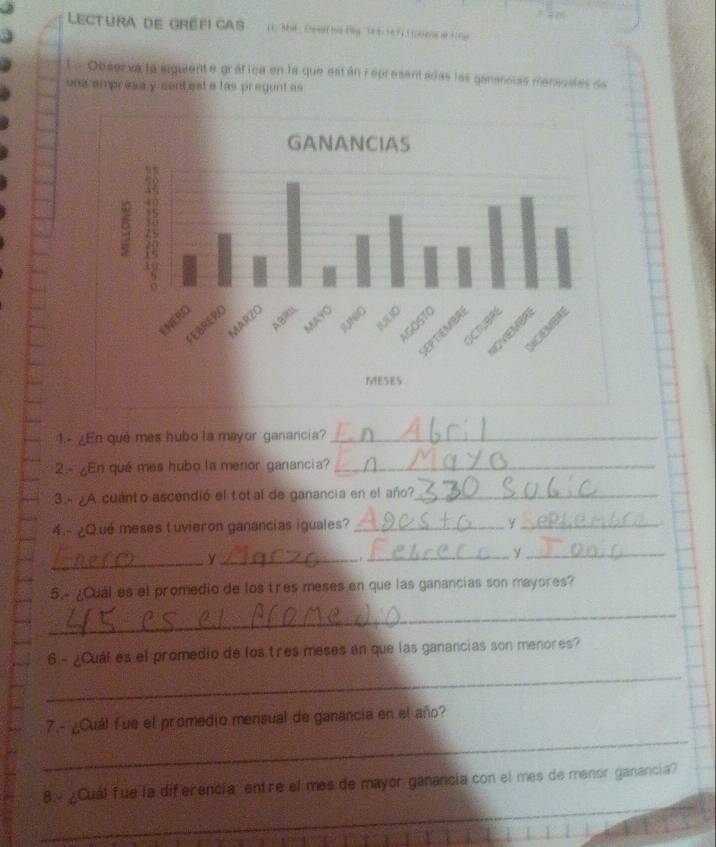 LECTURA DE GRÉFICAS
1.- Observa la siguiente gráfica en la que están representadas las ganancias mensuales de
una empresa y contesta las preguntas
GANANCIAS
MILLONES
ENERO FEBRERO MARZO ABRIL MAYO JUNIO JULIO AGOSTO SEPTIEMBRE OCTUBRE NOVIEMBRE DICIEMBRE
MESES
1.- ¿En qué mes hubo la mayor ganancia? En Abril
2.- ¿En qué mes hubo la menor ganancia? En Mayo
3.- ¿A cuánto ascendió el total de ganancia en el año? 330 Subio
4.- ¿Qué meses tuvieron ganancias iguales? Agosto y Septiembre
Enero y Marzo, Febrero y Jonio
5.- ¿Cuál es el promedio de los tres meses en que las ganancias son mayores?
45 es el Promedio
6.- ¿Cuál es el promedio de los tres meses en que las ganancias son menores?
7.- ¿Cuál fue el promedio mensual de ganancia en el año?
8.- ¿Cuál fue la diferencia entre el mes de mayor ganancia con el mes de menor ganancia?